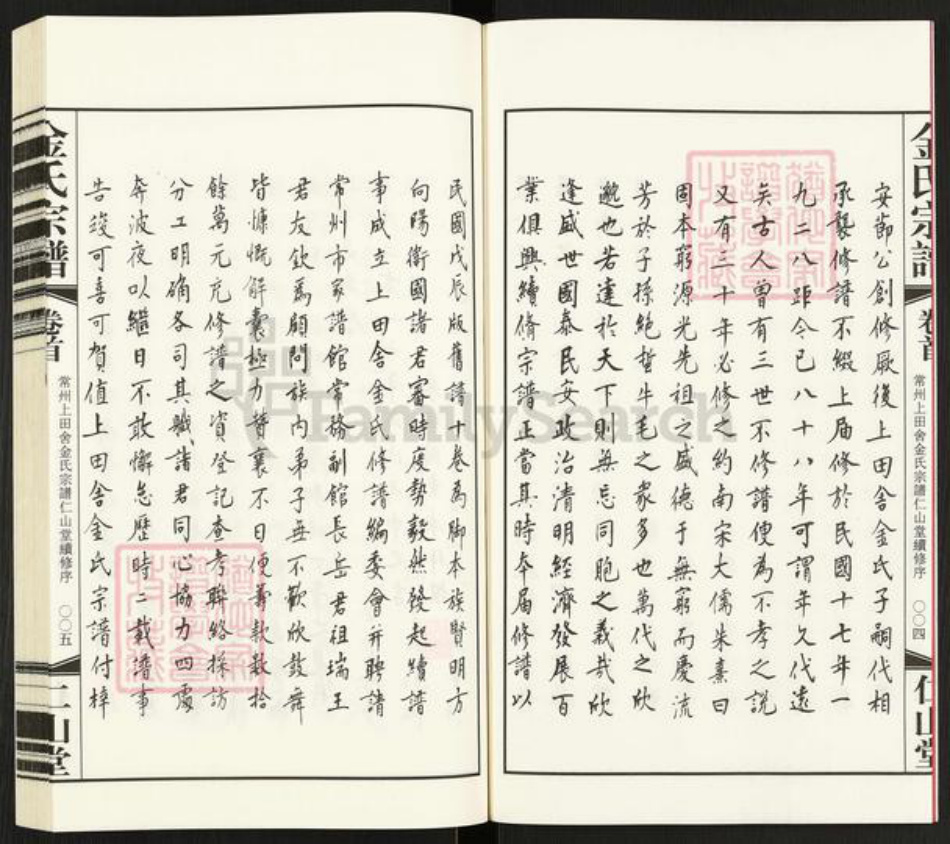 金氏宗譜
卷首
常州上田舍金氏宗譜仁山堂續修序
〇〇四
仁山堂
安節公創修厥後上田舍金氏子嗣代相
承襲修譜不綴上届修於民國十七年一
九二八距今已八十八年可謂年久代遠
矣古人曾有三世不修譜便為不孝之説
又有三十年必修之約南宋大儒朱熹曰
固本窮源光先祖之盛德于無窮而慶流
芳於子孫絶蜇牛毛之衆多也萬代之欣
邈也若達於天下則無忘同胞之義哉欣
逢盛世國泰民安政治清明經濟發展百
業俱興續脩宗譜正當其時本届修譜以
民國戊辰版舊譜十卷為脚本族賢明方
向陽衛國諸君審時度勢毅然發起續譜
事成立上田舍金氏修譜編委會并聘請
常州市家譜館常務副館長岳君祖瑞王
君友欽為顧問族内弟子無不歡欣鼓舞
皆慷慨解囊極力贊襄不日便籌款數拾
餘萬元充修譜之資登記查考聯絡採訪
分工明确各司其職諸君同心協力四處
奔波夜以繼日不敢懈怠歷時二載譜事
告竣可喜可賀值上田舍金氏宗譜付梓
金氏宗譜
卷首
常州上田舍金氏宗譜仁山堂續修序
〇〇五
仁山堂
FamilySearch